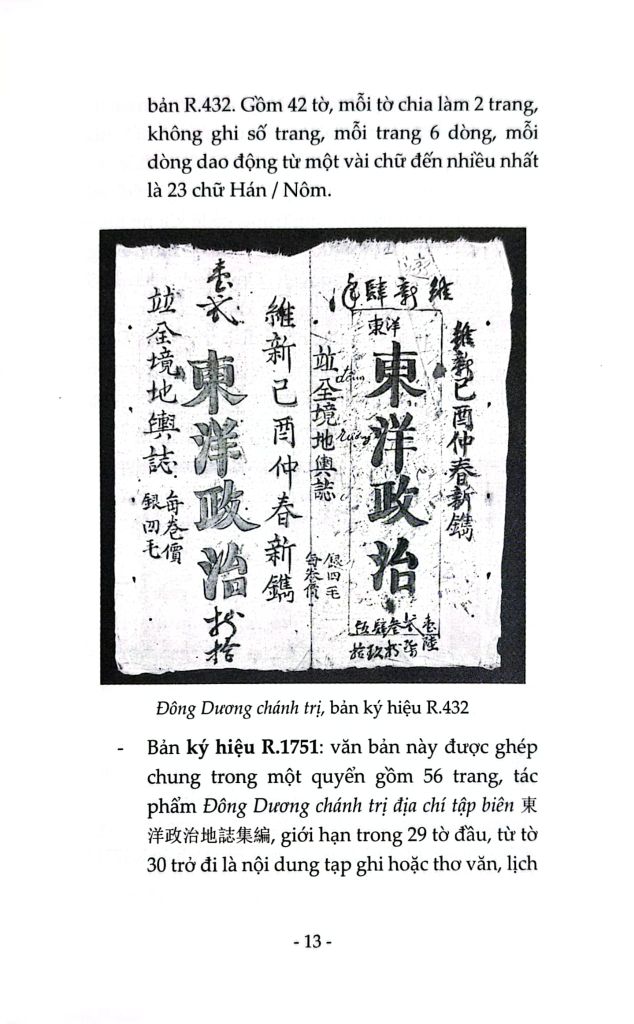 bản R.432. Gồm 42 tờ, mỗi tờ chia làm 2 trang,
không ghi số trang, mỗi trang 6 dòng, mỗi
dòng dao động từ một vài chữ đến nhiều nhất
là 23 chữ Hán / Nôm.
維新肆年
維新己酉仲春新鐫
東洋
東洋政治
竝全境地輿誌
每卷價
銀四毛
維新己酉仲春新鐫
東洋政治
竝全境地輿誌
每卷價
銀四毛
Đông Dương chánh trị, bản ký hiệu R.432
- Bản ký hiệu R.1751: văn bản này được ghép
chung trong một quyển gồm 56 trang, tác
phẩm Đông Dương chánh trị địa chí tập biên 東
洋政治地誌集編, giới hạn trong 29 tờ đầu, từ tờ
30 trở đi là nội dung tạp ghi hoặc thơ văn, lịch
- 13 -